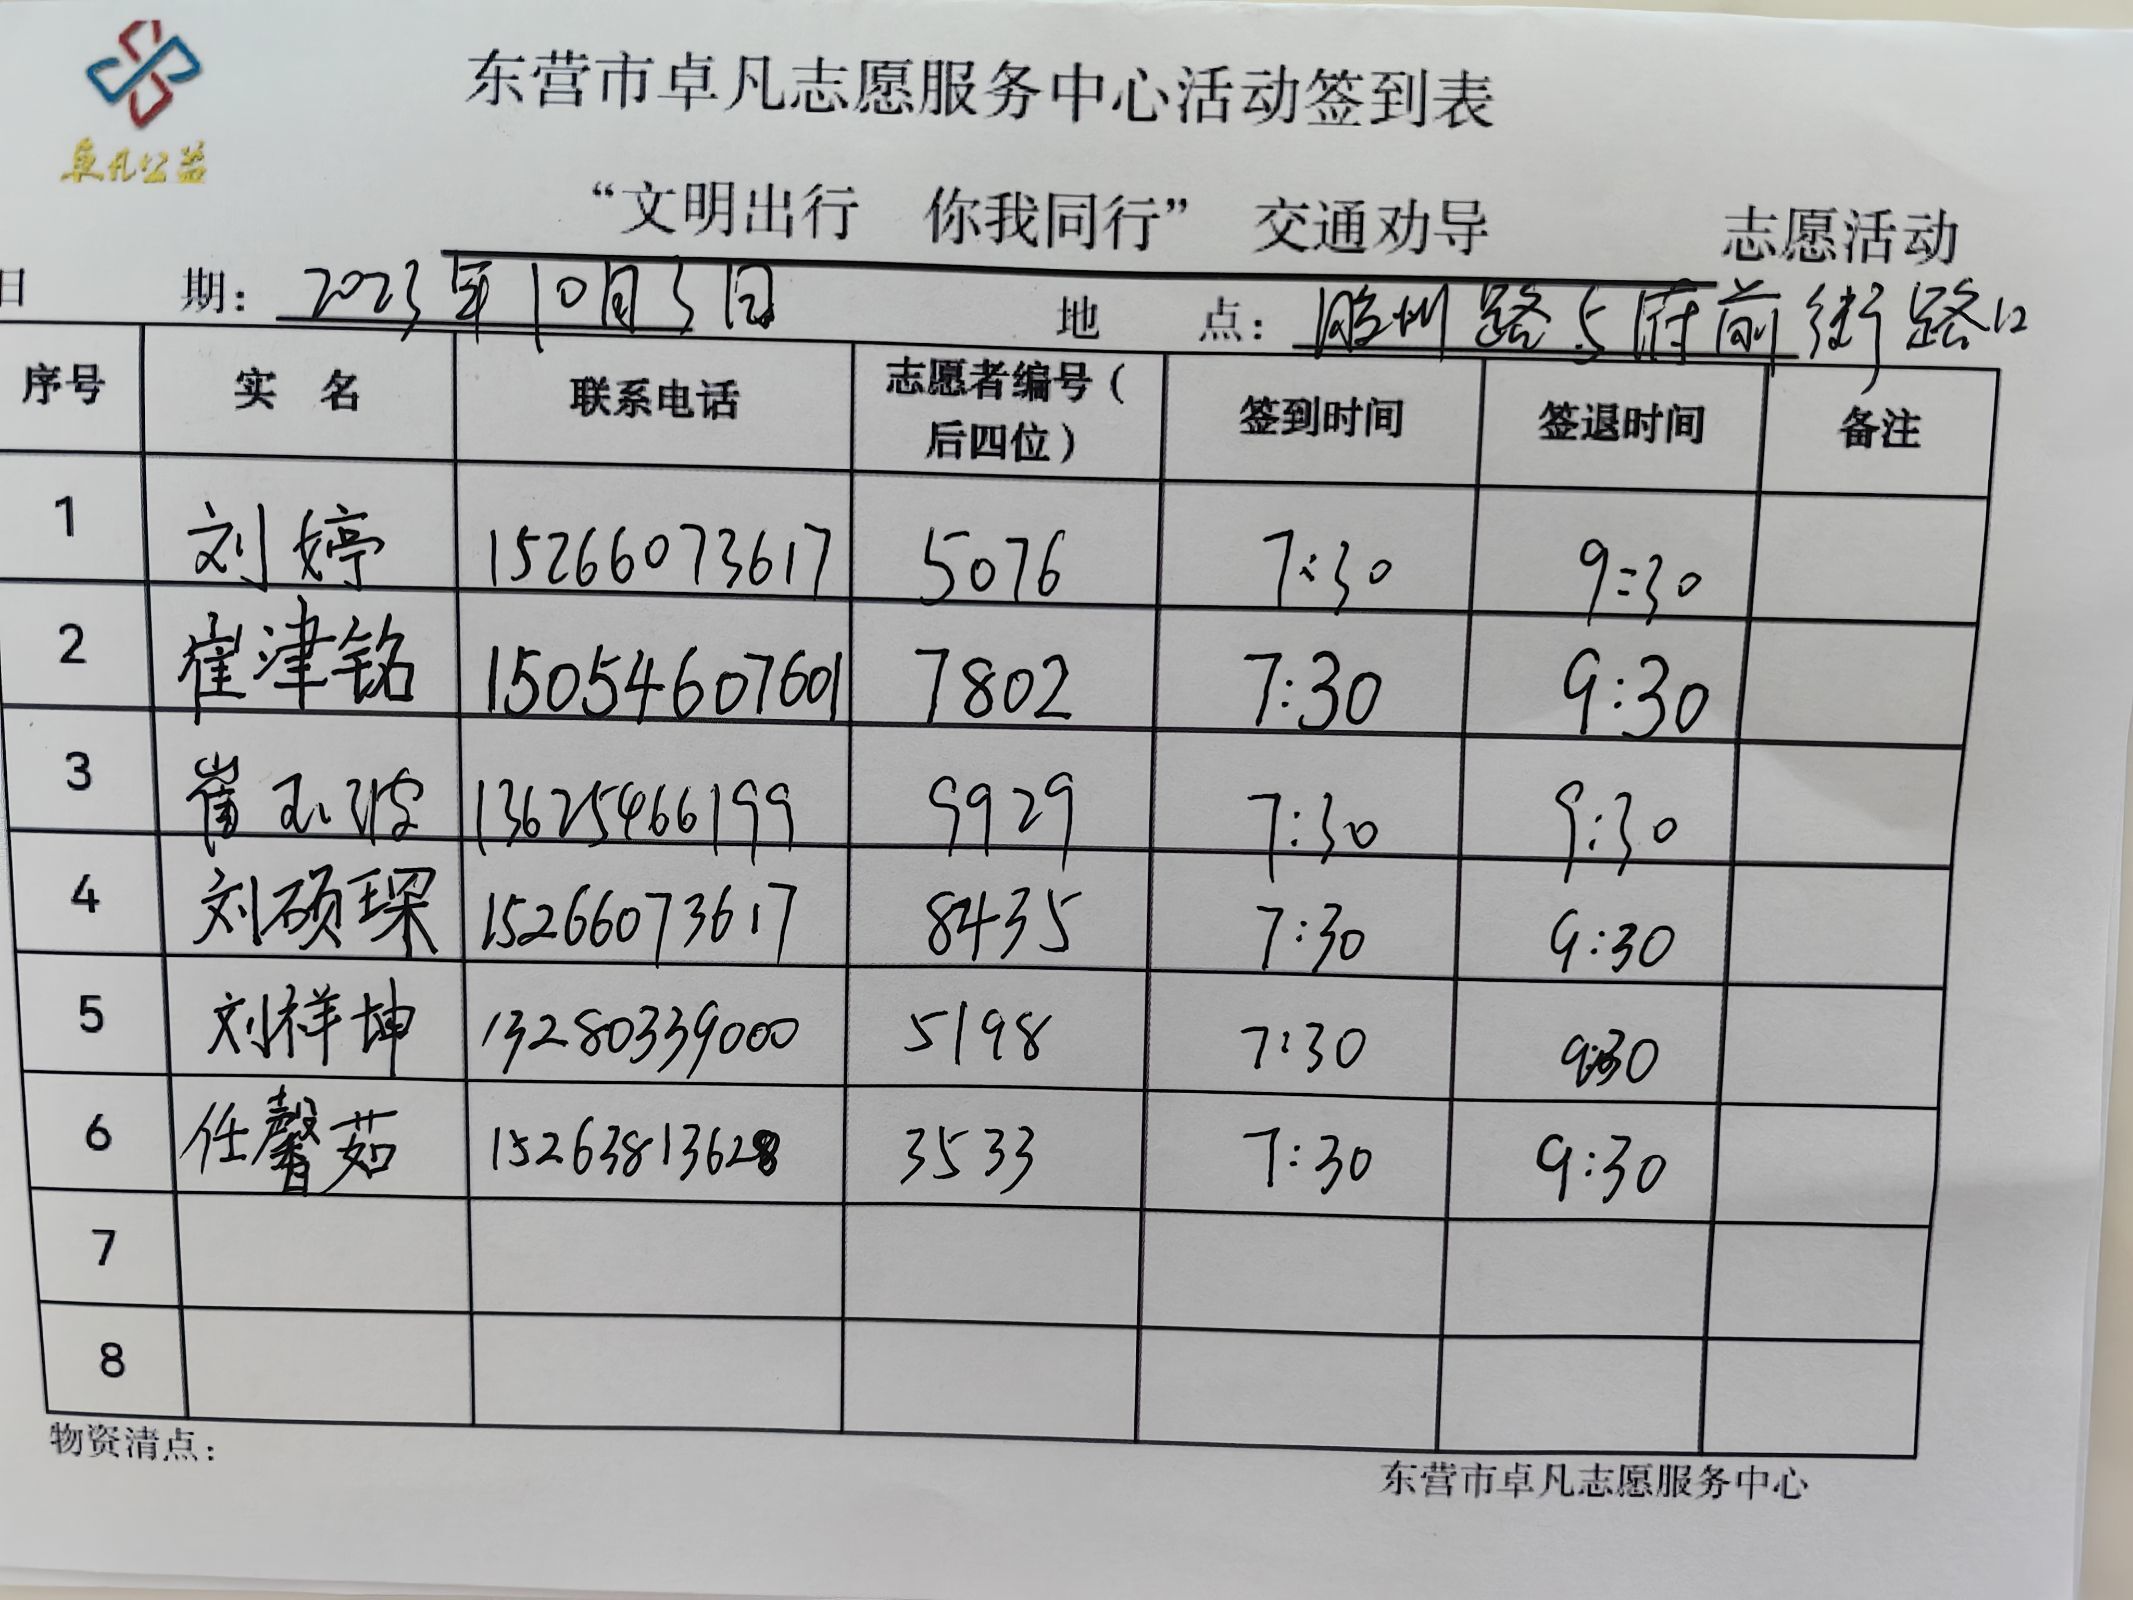 卓凡公益
东营市卓凡志愿服务中心活动签到表
“文明出行 你我同行” 交通劝导 志愿活动
日 期: 2023年10月3日 地 点: 胶州路与府前街路口
序号 实 名 联系电话 志愿者编号(后四位) 签到时间 签退时间 备注
1 刘婷 15266073617 5076 7:30 9:30
2 崔津铭 15054607601 7802 7:30 9:30
3 崔玉波 13625466199 9929 7:30 9:30
4 刘硕琛 15266073617 8435 7:30 9:30
5 刘祥坤 13280339000 5198 7:30 9:30
6 任馨茹 15263813628 3533 7:30 9:30
7
8
物资清点:
东营市卓凡志愿服务中心